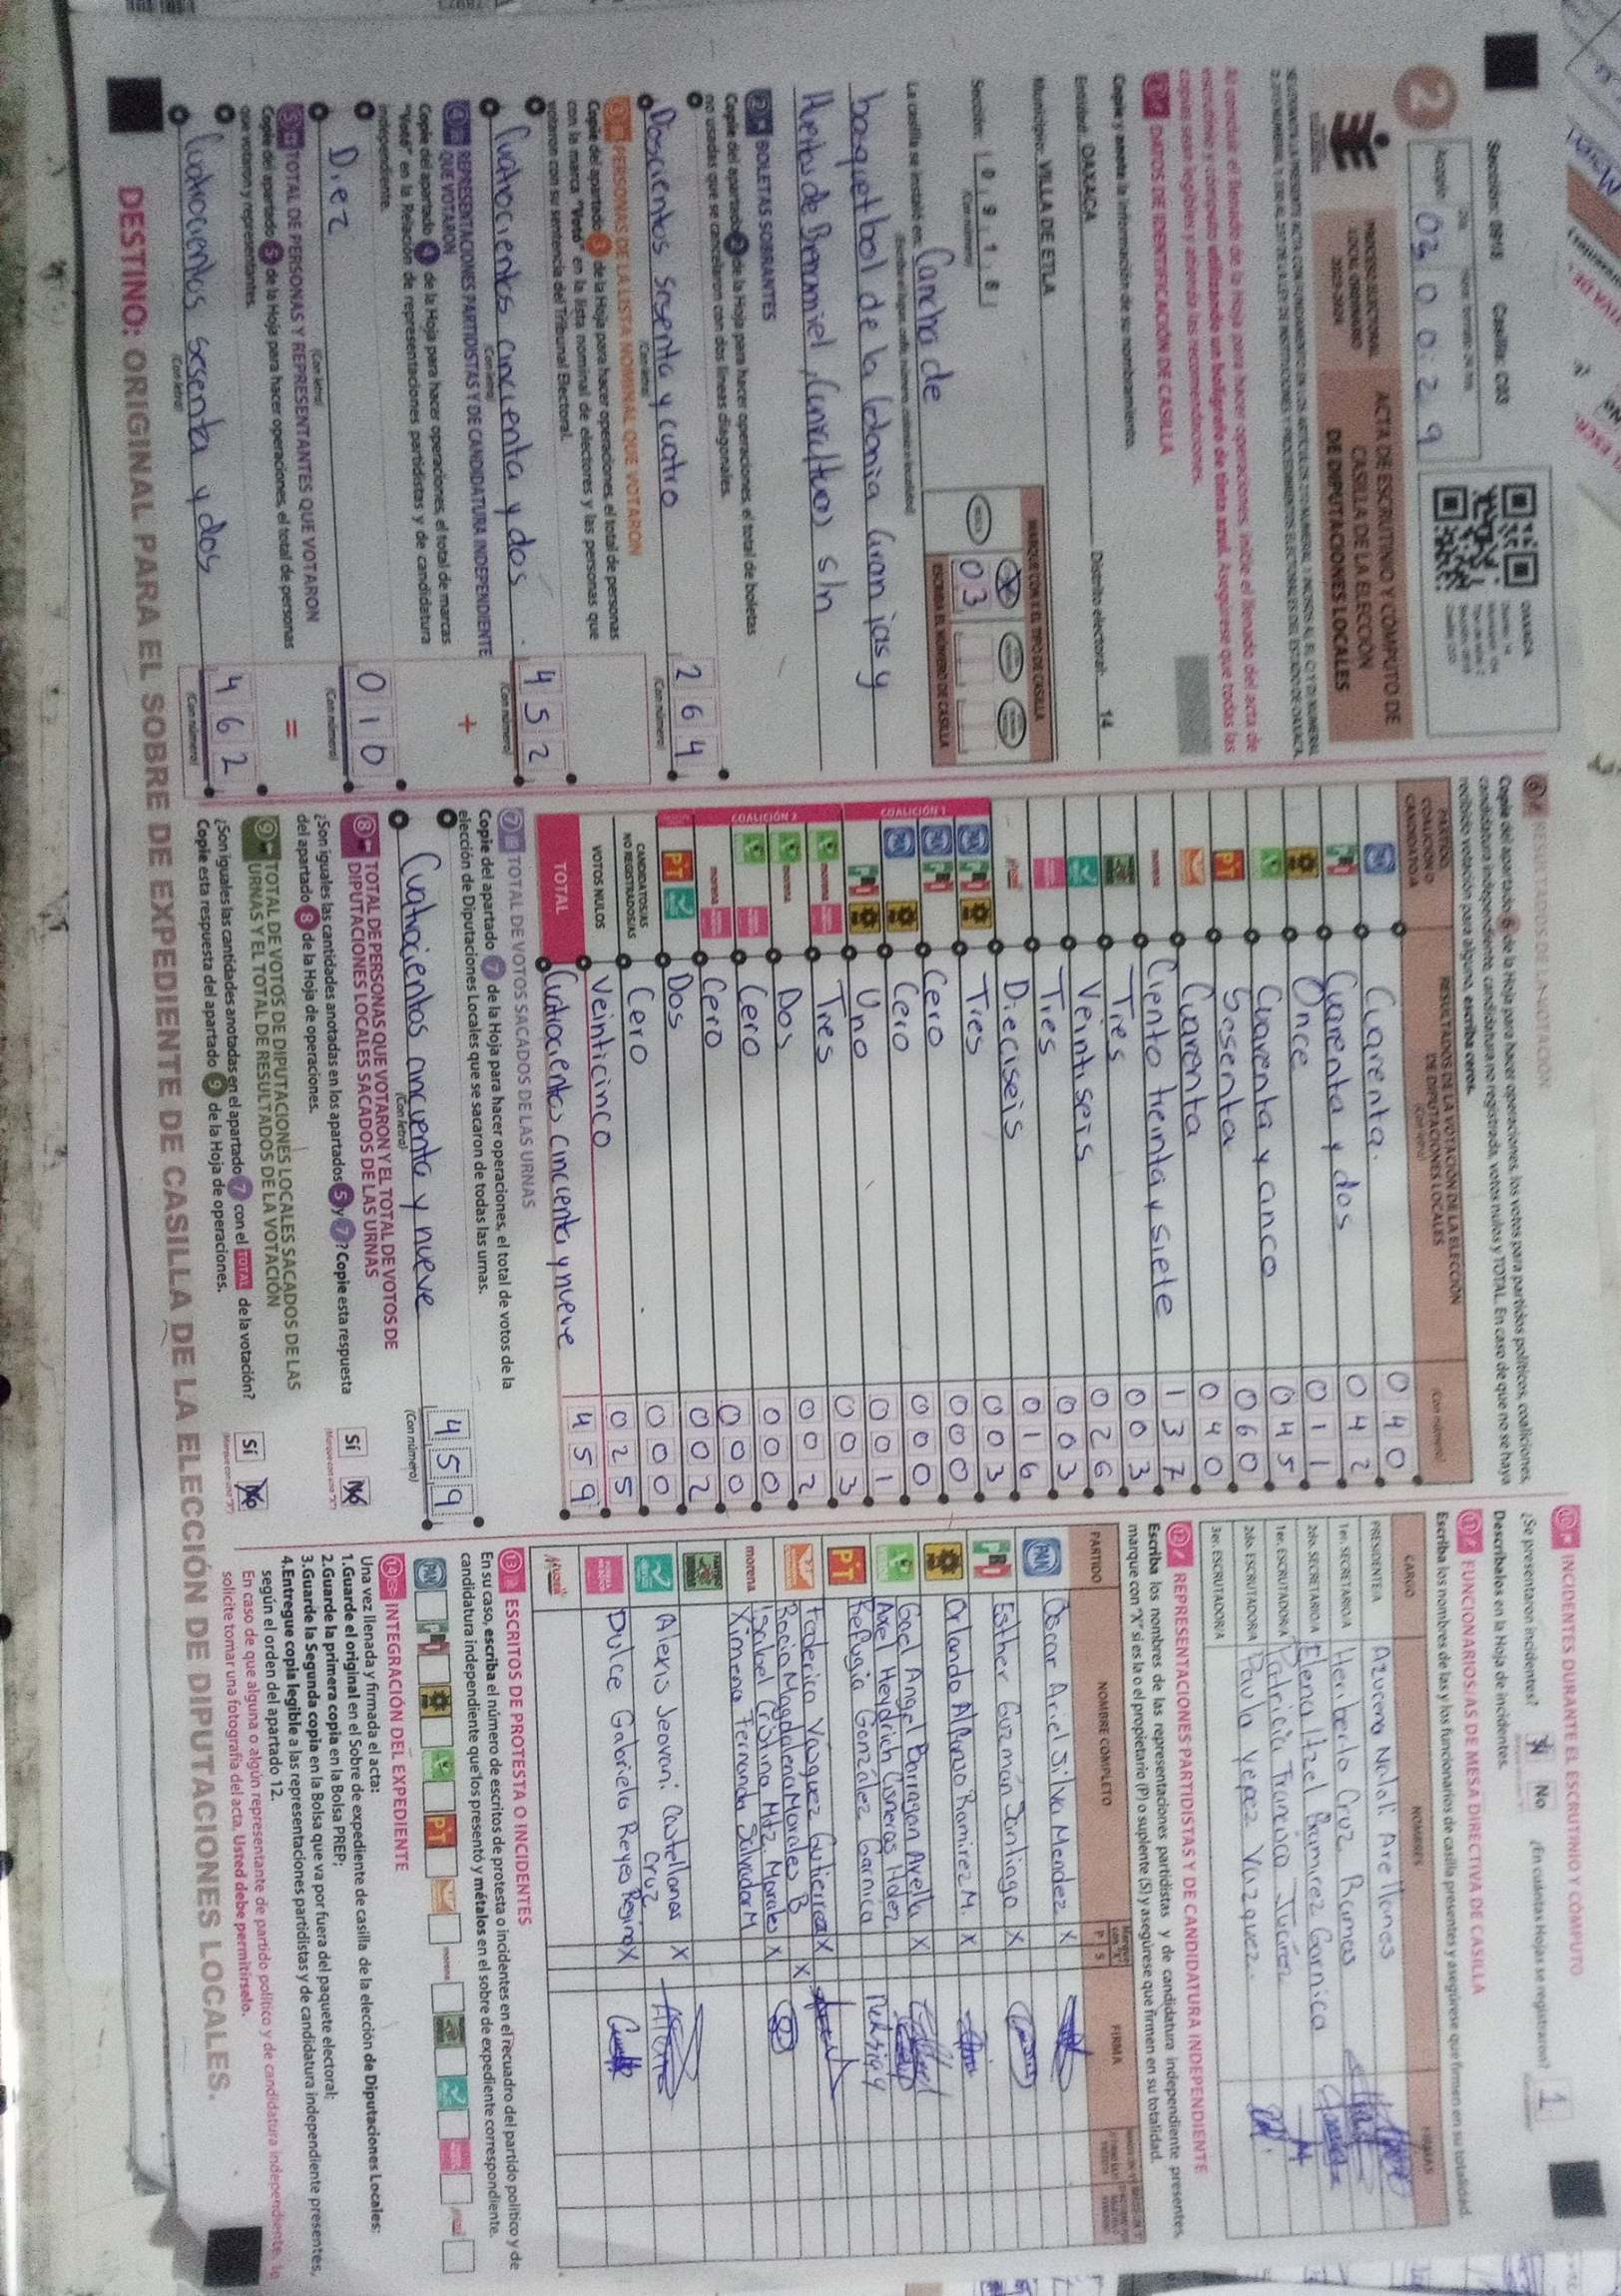 Sección: 0918 Casilla: C03
2
Acopio:
03 00:29
PROCESO ELECTORAL
LOCAL ORDINARIO
2023-2024
ACTA DE ESCRUTINIO Y CÓMPUTO DE
CASILLA DE LA ELECCIÓN
DE DIPUTACIONES LOCALES
OAXACA
Al concluir el llenado de la Hoja para hacer operaciones, inicie el llenado del acta de
escrutinio y cómputo utilizando un bolígrafo de tinta azul. Asegúrese que todas las
copias sean legibles y atienda las recomendaciones.
1 DATOS DE IDENTIFICACIÓN DE CASILLA
Copie y anote la información de su nombramiento.
Entidad: OAXACA Distrito electoral: 14
Municipio: VILLA DE ETLA
Sección: 0 9 1 8
(Con número)
MARQUE CON X EL TIPO DE CASILLA
ESCRIBA EL NÚMERO DE CASILLA
03
La casilla se instaló en: Cancha de
basquetbol de la Colonia Granjas y
Huertos de Brenamiel,
s/n
2 BOLETAS SOBRANTES
Copie del apartado 2 de la Hoja para hacer operaciones, el total de boletas
no usadas que se cancelaron con dos líneas diagonales.
Doscientos sesenta y cuatro 2 6 4
(Con letra) (Con número)
3 PERSONAS DE LA LISTA NOMINAL QUE VOTARON
Copie del apartado 3 de la Hoja para hacer operaciones, el total de personas
con la marca "Votó" en la lista nominal de electores y las personas que
votaron con su sentencia del Tribunal Electoral.
Cuatrocientos cincuenta y dos 4 5 2
(Con letra) (Con número)
4 REPRESENTACIONES PARTIDISTAS Y DE CANDIDATURA INDEPENDIENTE
QUE VOTARON +
Copie del apartado 4 de la Hoja para hacer operaciones, el total de marcas
"Votó" en la Relación de representaciones partidistas y de candidatura
independiente.
Diez 0 1 0
(Con letra) (Con número)
5 TOTAL DE PERSONAS Y REPRESENTANTES QUE VOTARON =
Copie del apartado 5 de la Hoja para hacer operaciones, el total de personas
que votaron y representantes.
Cuatrocientos sesenta y dos 4 6 2
(Con letra) (Con número)
6 RESULTADOS DE LA VOTACIÓN
Copie del apartado 6 de la Hoja para hacer operaciones, los votos para partidos políticos, coaliciones,
candidatura independiente, candidatura no registrada, votos nulos y TOTAL. En caso de que no se haya
recibido votación para alguno, escriba ceros.
PARTIDO, COALICIÓN O CANDIDATO/A
RESULTADOS DE LA VOTACIÓN DE LA ELECCIÓN
DE DIPUTACIONES LOCALES
(Con letra) (Con número)
PAN Cuarenta. 0 4 0
PRI Cuarenta y dos 0 4 2
Once 0 1 1
Cuarenta y cinco 0 4 5
PT Sesenta 0 6 0
Cuarenta 0 4 0
morena Ciento treinta y siete 1 3 7
Tres 0 0 3
Veintiseis 0 2 6
Tres 0 0 3
Dieciseis 0 1 6
COALICIÓN 1
PAN PRI Tres 0 0 3
PAN PRI Cero 0 0 0
PAN Cero 0 0 0
PRI Uno 0 0 1
COALICIÓN 2
morena Tres 0 0 3
morena Dos 0 0 2
Cero 0 0 0
morena Cero 0 0 0
PT Dos 0 0 2
CANDIDATOS/AS NO REGISTRADOS/AS Cero 0 0 0
VOTOS NULOS Veinticinco 0 2 5
TOTAL Cuatrocientos cincuenta y nueve 4 5 9
7 TOTAL DE VOTOS SACADOS DE LAS URNAS
Copie del apartado 7 de la Hoja para hacer operaciones, el total de votos de la
elección de Diputaciones Locales que se sacaron de todas las urnas.
Cuatrocientos cincuenta y nueve 4 5 9
(Con letra) (Con número)
8 TOTAL DE PERSONAS QUE VOTARON Y EL TOTAL DE VOTOS DE
DIPUTACIONES LOCALES SACADOS DE LAS URNAS
¿Son iguales las cantidades anotadas en los apartados 5 y 7? Copie esta respuesta
del apartado 8 de la Hoja de operaciones. Sí No
9 TOTAL DE VOTOS DE DIPUTACIONES LOCALES SACADOS DE LAS
URNAS Y EL TOTAL DE RESULTADOS DE LA VOTACIÓN
¿Son iguales las cantidades anotadas en el apartado 7 con el TOTAL de la votación?
Copie esta respuesta del apartado 9 de la Hoja de operaciones. Sí No
10 INCIDENTES DURANTE EL ESCRUTINIO Y CÓMPUTO
¿Se presentaron incidentes? Sí No ¿En cuántas Hojas se registraron? 1
Descríbalos en la Hoja de incidentes.
11 FUNCIONARIOS/AS DE MESA DIRECTIVA DE CASILLA
Escriba los nombres de las y los funcionarios de casilla presentes y asegúrese que firmen en su totalidad.
CARGO NOMBRES FIRMAS
PRESIDENTE/A Azucena Nalali Arellanes
1er. SECRETARIO/A Heriberto Cruz Ramos
2do. SECRETARIO/A Elena Itzel Ramirez Garnica
1er. ESCRUTADOR/A Patricia Francisco Juárez
2do. ESCRUTADOR/A Paula Yepez Vazquez.
3er. ESCRUTADOR/A
12 REPRESENTACIONES PARTIDISTAS Y DE CANDIDATURA INDEPENDIENTE
Escriba los nombres de las representaciones partidistas y de candidatura independiente presentes,
marque con "X" si es la o el propietario (P) o suplente (S) y asegúrese que firmen en su totalidad.
PARTIDO NOMBRE COMPLETO P S FIRMA
PAN Oscar Ariel Silva Mendez X
PRI Esther Guzmán Santiago X
Orlando Alfonzo Ramirez M. X
Gael Angel Barragan Avella X
Axel Heydrich Cisneros Hdez
PT Refugia González Garnica
Federico Vásquez Gutierrez X
Rocio Magdalena Morales B X
morena Isabel Cristina Mtz. Morales X
Ximena Fernanda Salvador M
Alexis Jeovani Castellanos Cruz X
Dulce Gabriela Reyes Regino X
13 ESCRITOS DE PROTESTA O INCIDENTES
En su caso, escriba el número de escritos de protesta o incidentes en el recuadro del partido político y de
candidatura independiente que los presentó y métalos en el sobre de expediente correspondiente.
PAN PRI PT morena
14 INTEGRACIÓN DEL EXPEDIENTE
Una vez llenada y firmada el acta:
1.Guarde el original en el Sobre de expediente de casilla de la elección de Diputaciones Locales;
2.Guarde la primera copia en la Bolsa PREP;
3.Guarde la Segunda copia en la Bolsa que va por fuera del paquete electoral;
4.Entregue copia legible a las representaciones partidistas y de candidatura independiente presentes,
según el orden del apartado 12.
En caso de que alguna o algún representante de partido político y de candidatura independiente, le
solicite tomar una fotografía del acta, Usted debe permitírselo.
DESTINO: ORIGINAL PARA EL SOBRE DE EXPEDIENTE DE CASILLA DE LA ELECCIÓN DE DIPUTACIONES LOCALES.